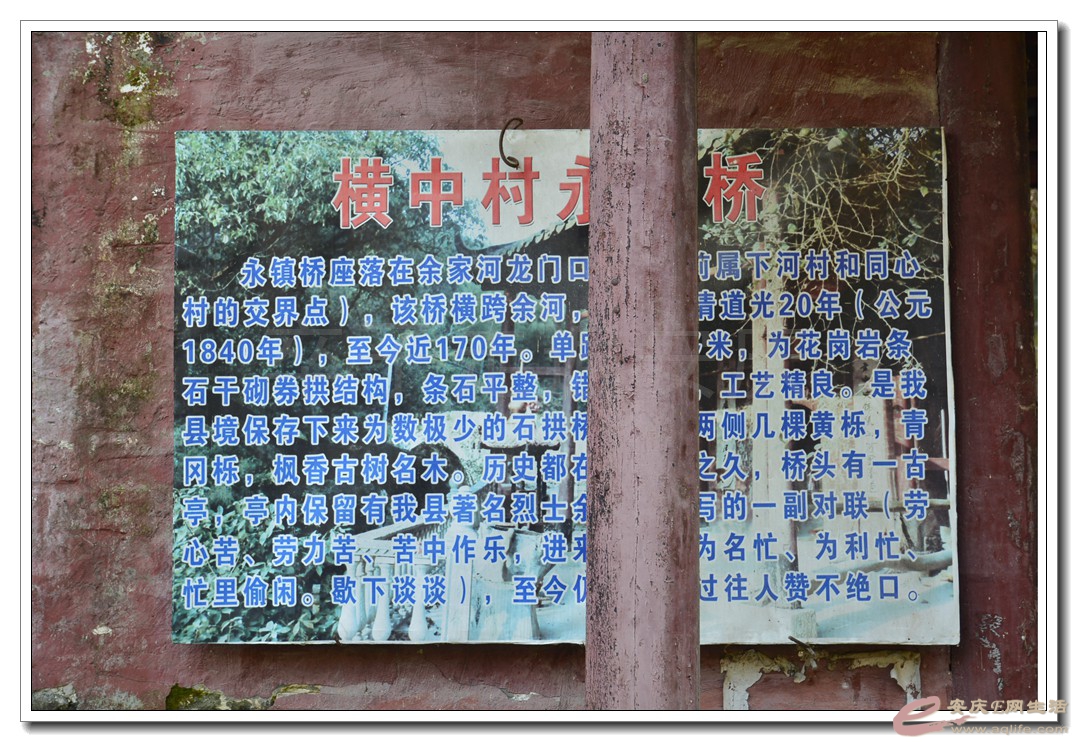 横中村永 桥
永镇桥座落在余家河龙门口 前属下河村和同心
村的交界点），该桥横跨余河， 清道光20年（公元
1840年），至今近170年。单跨 米，为花岗岩条
石干砌券拱结构，条石平整，错 ，工艺精良。是我
县境保存下来为数极少的石拱桥 两侧几棵黄栎，青
冈栎，枫香古树名木。历史都在 之久，桥头有一古
亭，亭内保留有我县著名烈士余 写的一副对联（劳
心苦、劳力苦、苦中作乐，进来 为名忙、为利忙、
忙里偷闲。歇下谈谈），至今仍 过往人赞不绝口。
安庆E网生活
www.aqlife.com